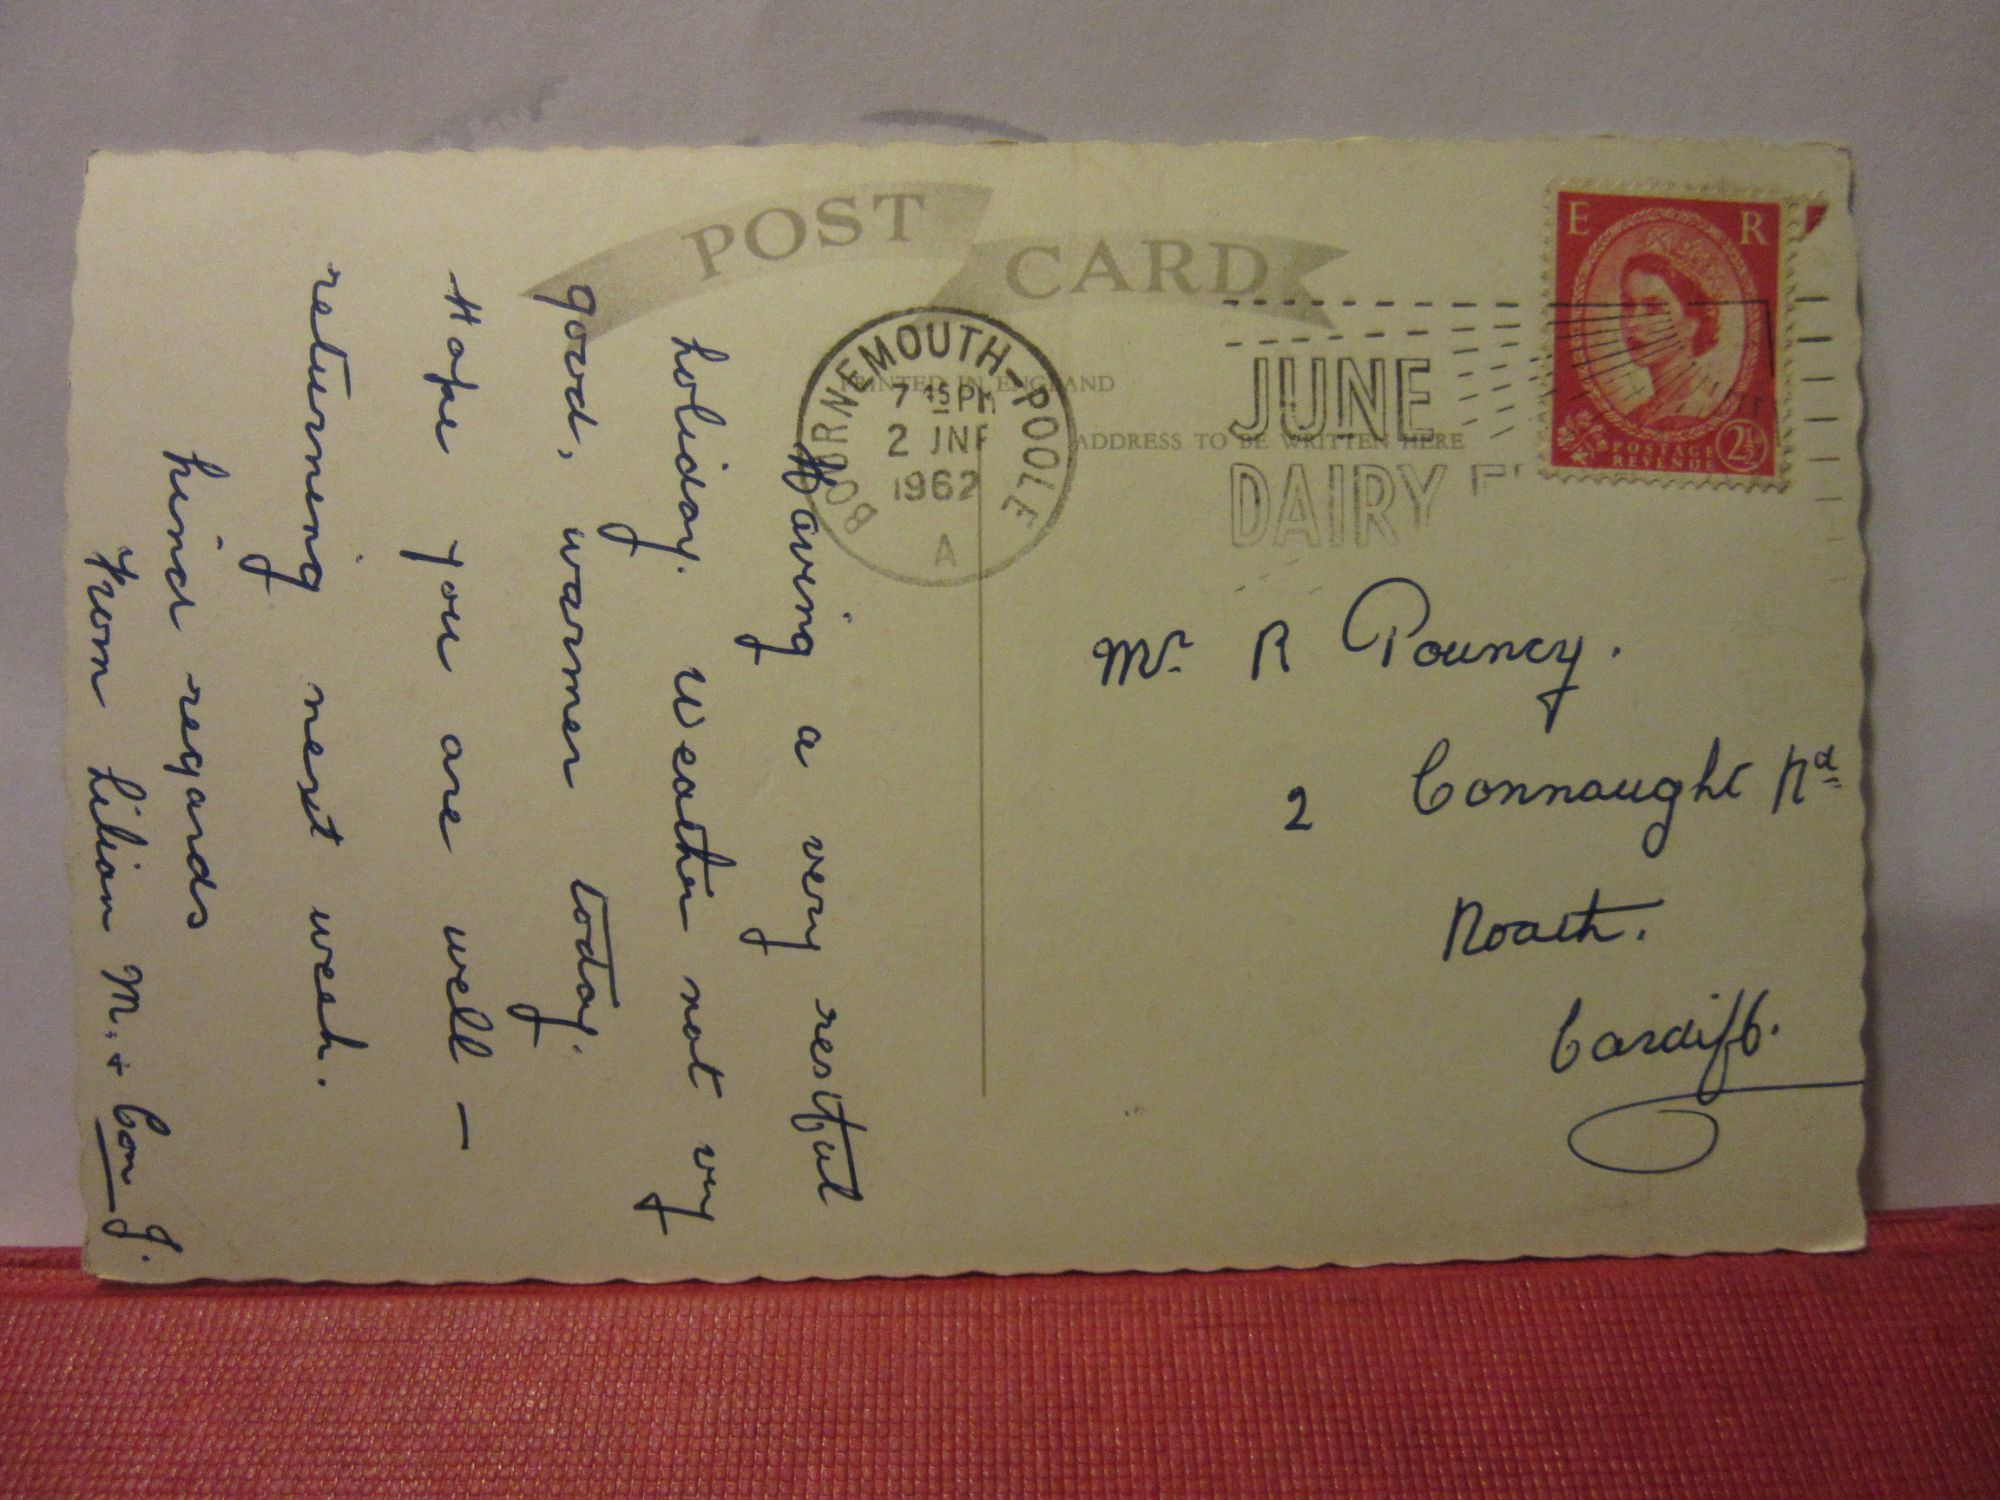 POST CARD
PRINTED IN ENGLAND
ADDRESS TO BE WRITTEN HERE
BOURNEMOUTH-POOLE
7 15 PM
2 JNE
1962
A
JUNE
DAIRY
E R
POSTAGE
REVENUE
2½
Having a very restful
holiday. Weather not very
good, warmer today.
Hope you are well —
returning next week.
Kind regards
From Lilian M. + Con J.
Mr. R Pouncy.
2 Connaught Rd
Roath.
Cardiff.